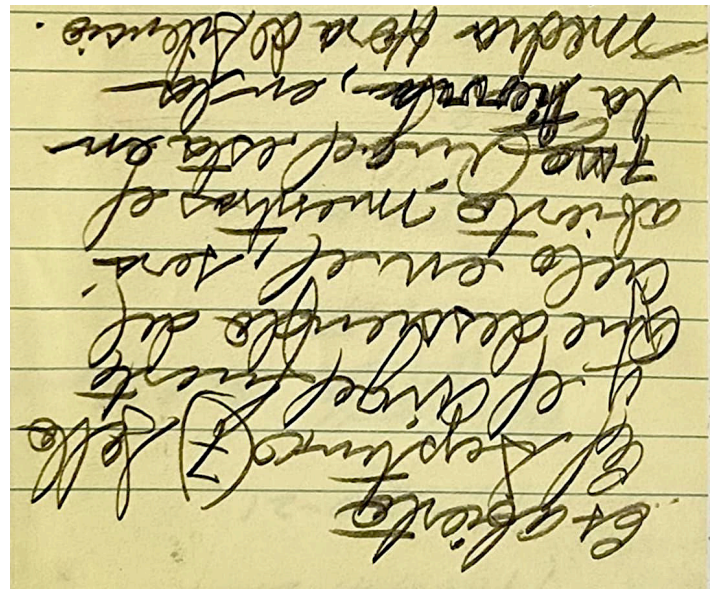 Es abierto
el septimo (7) sello
y el angel fuerte
que desciendio del
cielo en el, será
abierto mientras el
7mo Angel está en
la tierra, en la
media Hora de silencio.